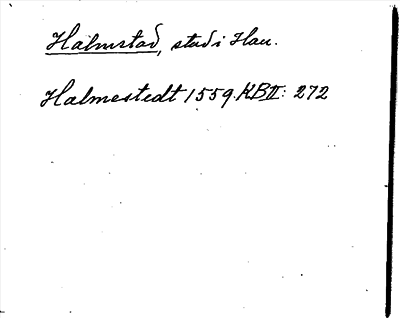 Halmstad, stad i Hall.
Halmestedt 1559. KB II: 272